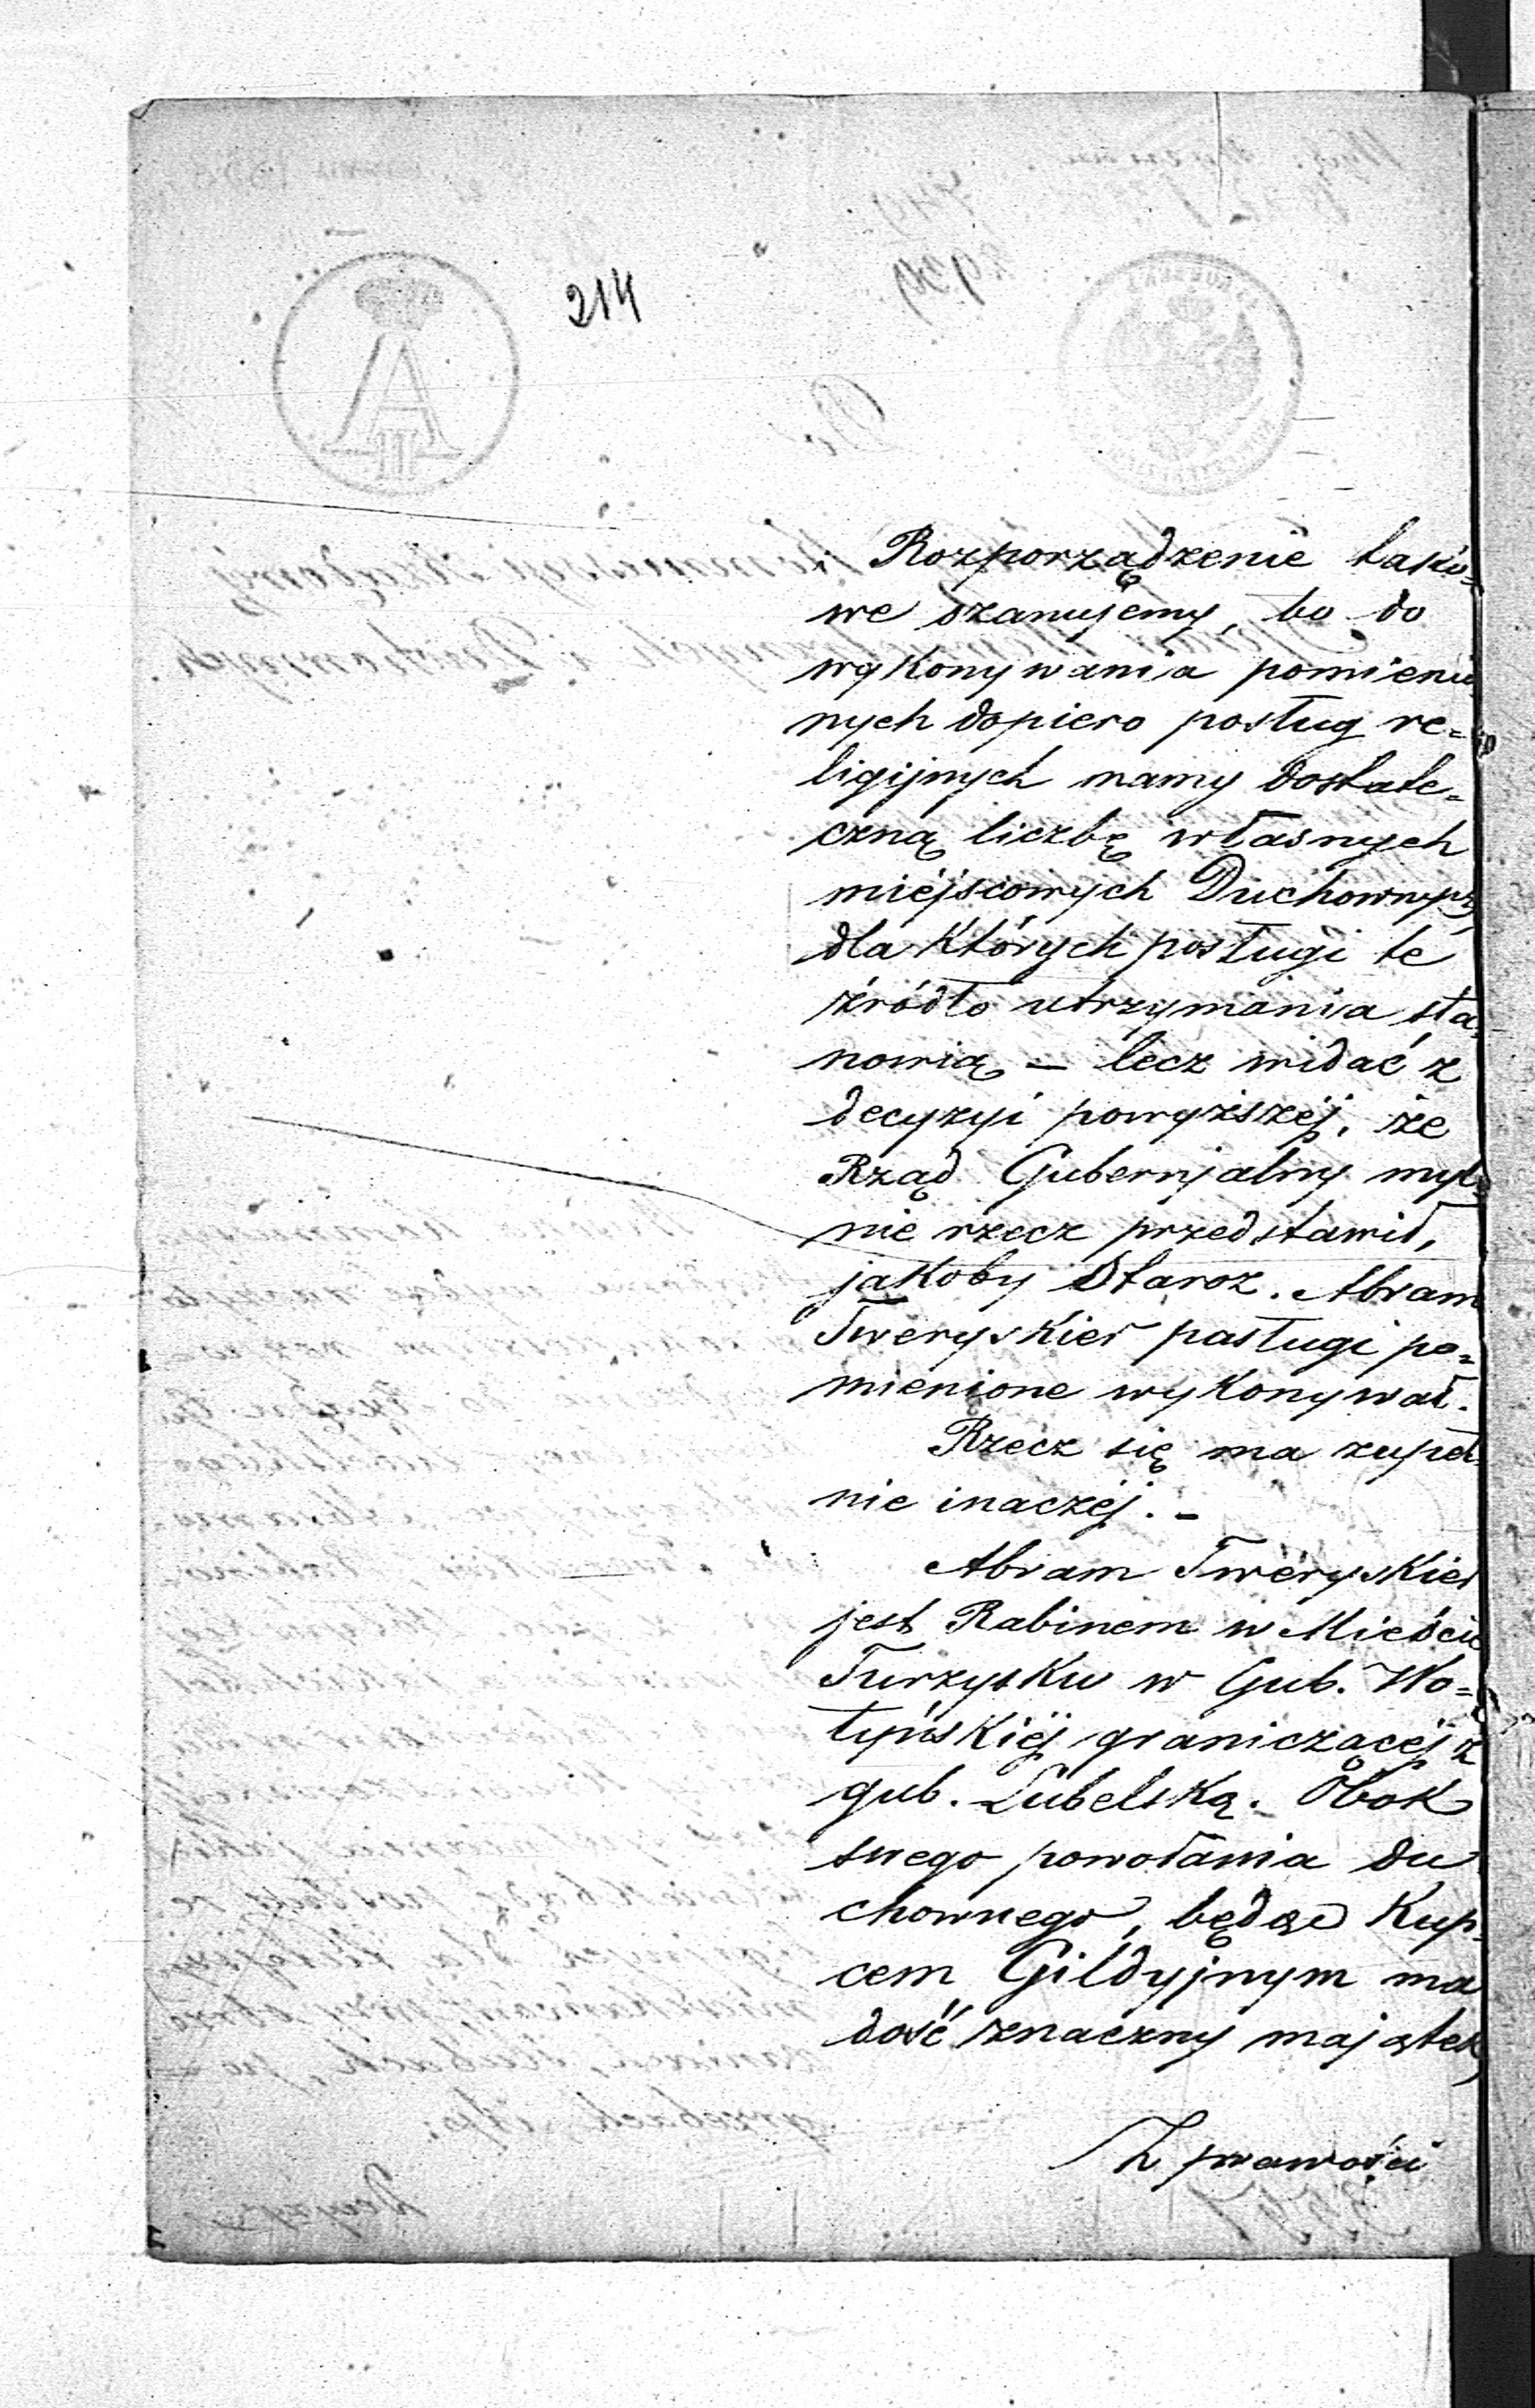 214
Rozporządzenie tako=
we szanujemy, bo do
wykonywania pomienio
nych dopiero posług re=
ligijnych mamy dostate=
czną liczbę własnych
miéjscowych Duchownych,
dla których posługi te
źródło utrzymania sta=
nowią – lecz widać z
decyzyi powyższéj, że
Rząd Gubernjalny myl=
nie rzecz przedstawił,
jakoby Staroz. Abram
Tweryskier posługi po=
mienione wykonywał.
Rzecz się ma zupeł=
nie inaczéj. –
Abram Tweryskier
jest Rabinem w Mieście
Turzysku w Gub. Wo=
łyńskiéj graniczącéj z
gub. Lubelską. Obok
swego powołania du
chownego, będąc Kup=
cem Gildyjnym ma
dość znaczny majątek,
Z prawości